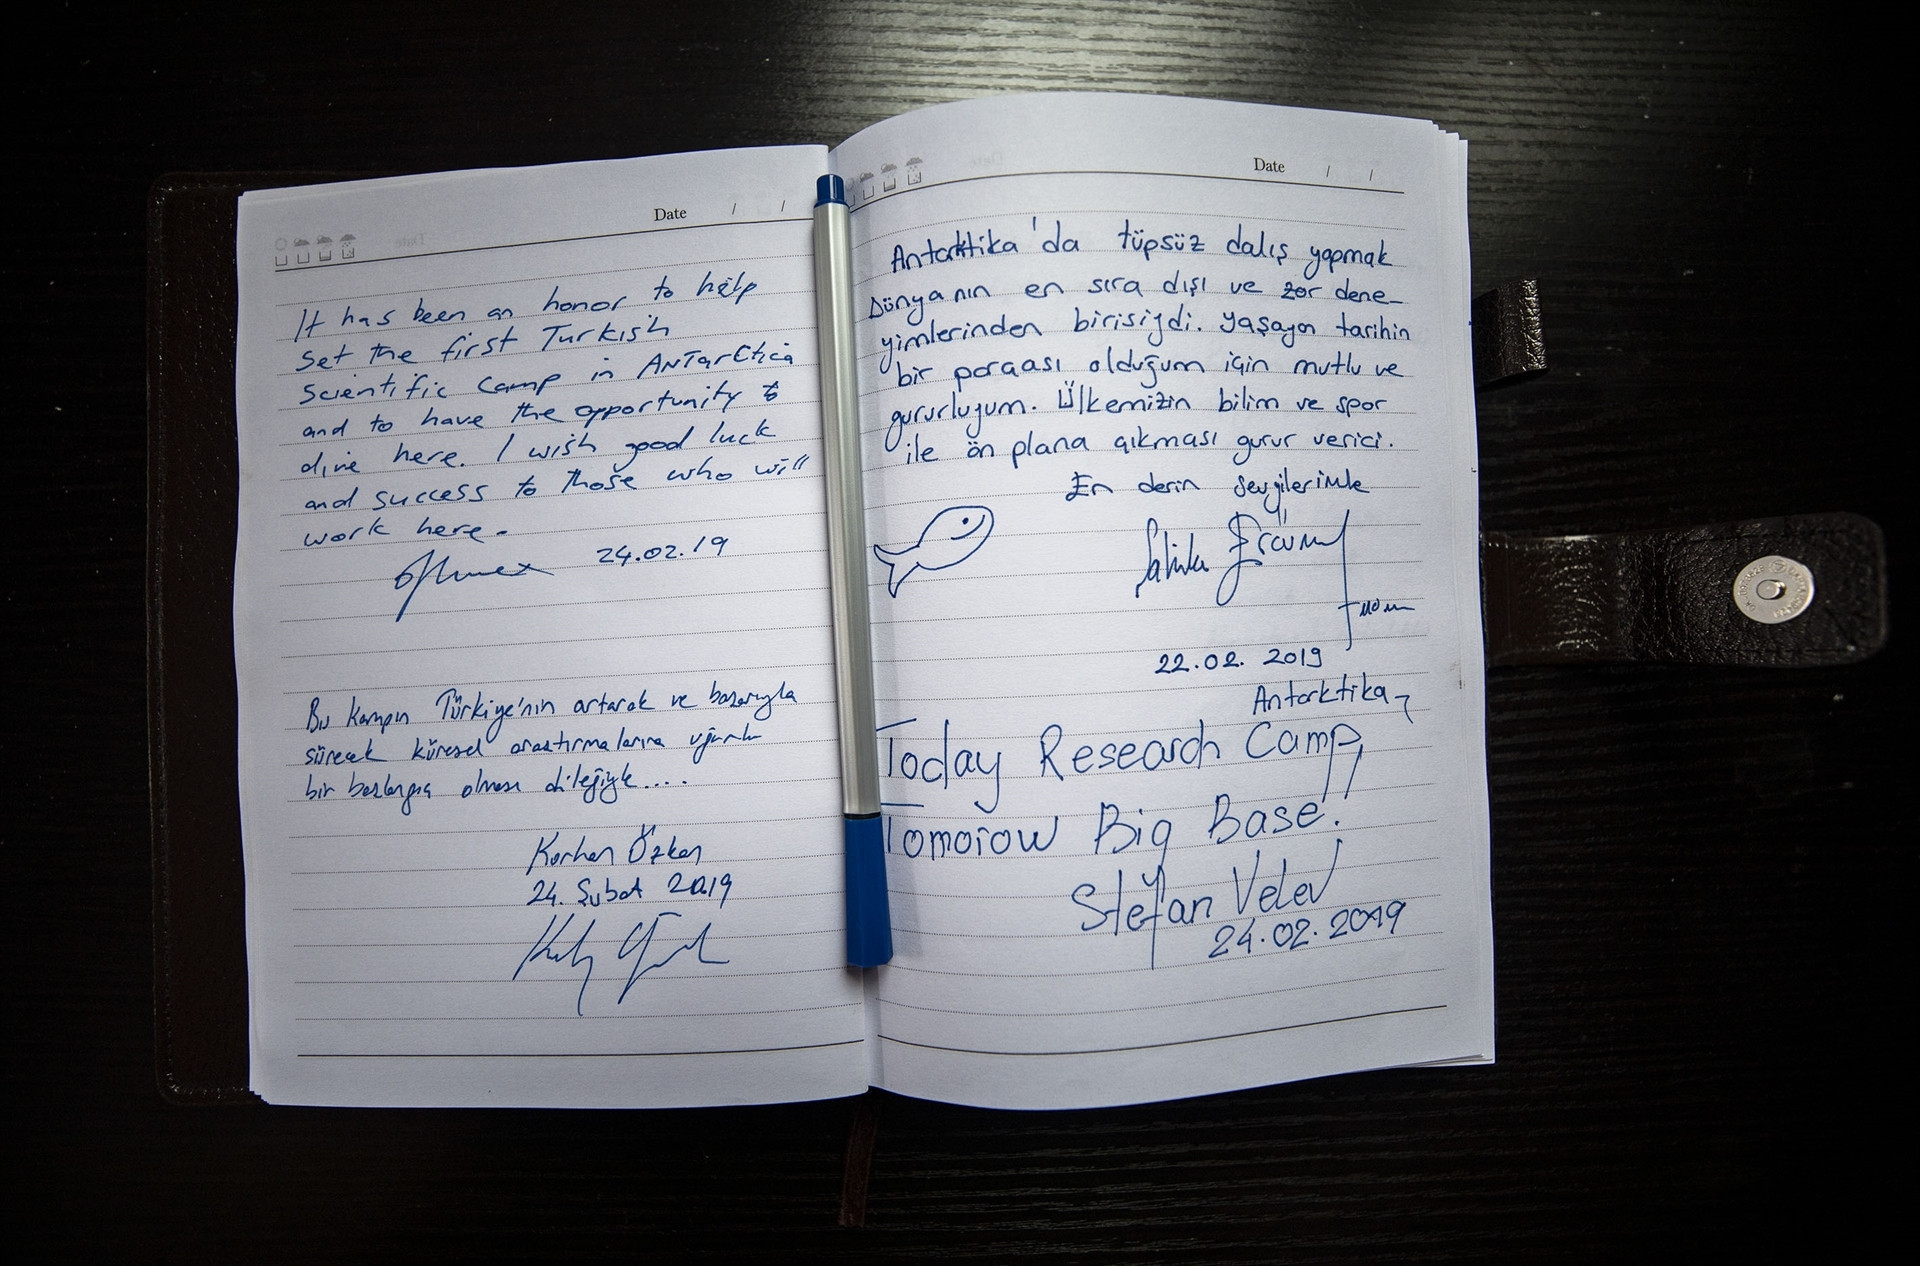 Date / /
It has been an honor to help
set the first Turkish
Scientific Camp in AnTarCtica
and to have the opportunity to
dive here. I wish good luck
and success to those who will
work here.
24.02.19
Bu kampın Türkiye'nin artarak ve başarıyla
sürecek küresel araştırmalarına uğurlu
bir başlangıç olması dileğiyle....
Korhan Özkan
24. Şubat 2019
Date / /
Antarktika'da tüpsüz dalış yapmak
Dünyanın en sıra dışı ve zor dene-
yimlerinden birisiydi. Yaşayan tarihin
bir parçası olduğum için mutlu ve
gururluyum. Ülkemizin bilim ve spor
ile ön plana çıkması gurur verici.
En derin sevgilerimle
Şahika Ercümen
22.02.2019
Antarktika
Today Research Camp,
Tomorow Big Base!
Stefan Velev
24.02.2019